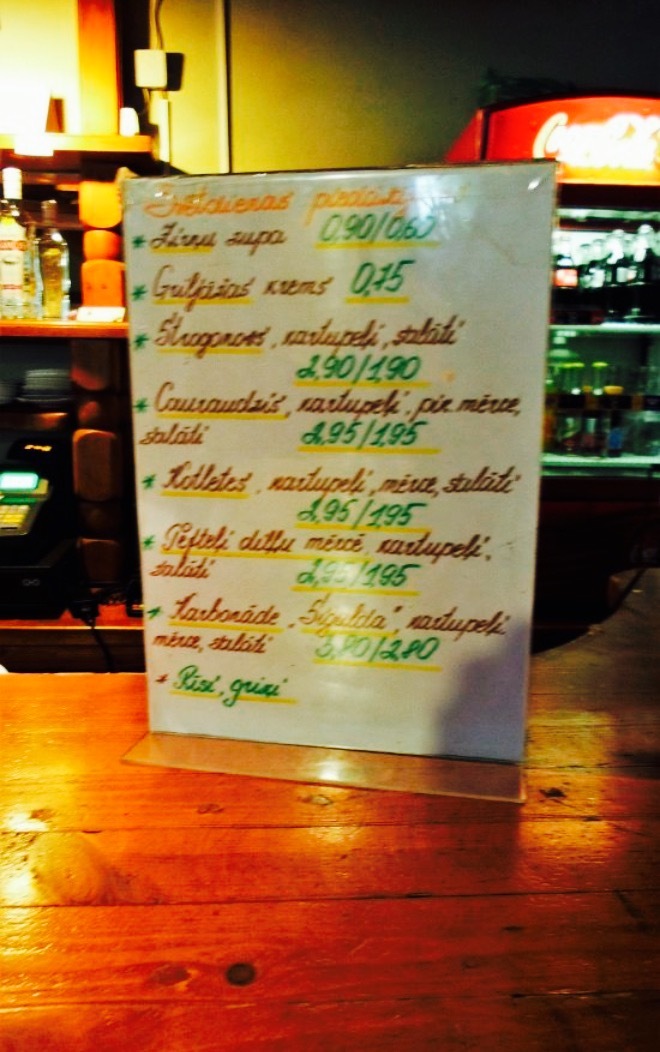 Svētdienas
* Zirņu zupa 0,90/0,60
* Guljāšas krems 0,75
* Strogonovs, kartupeļi, salāti
2,90/1,90
* Cauraudzis, kartupeļi, pik. mērce,
salāti 2,95/1,95
* Kotletes, kartupeļi, mērce, salāti
2,95/1,95
* Tefteļi diļļu mērcē, kartupeļi,
salāti 2,95/1,95
* Karbonāde "Sigulda", kartupeļi
mērce, salāti 3,80/2,80
* Rīsi, griķi
Coca-Cola